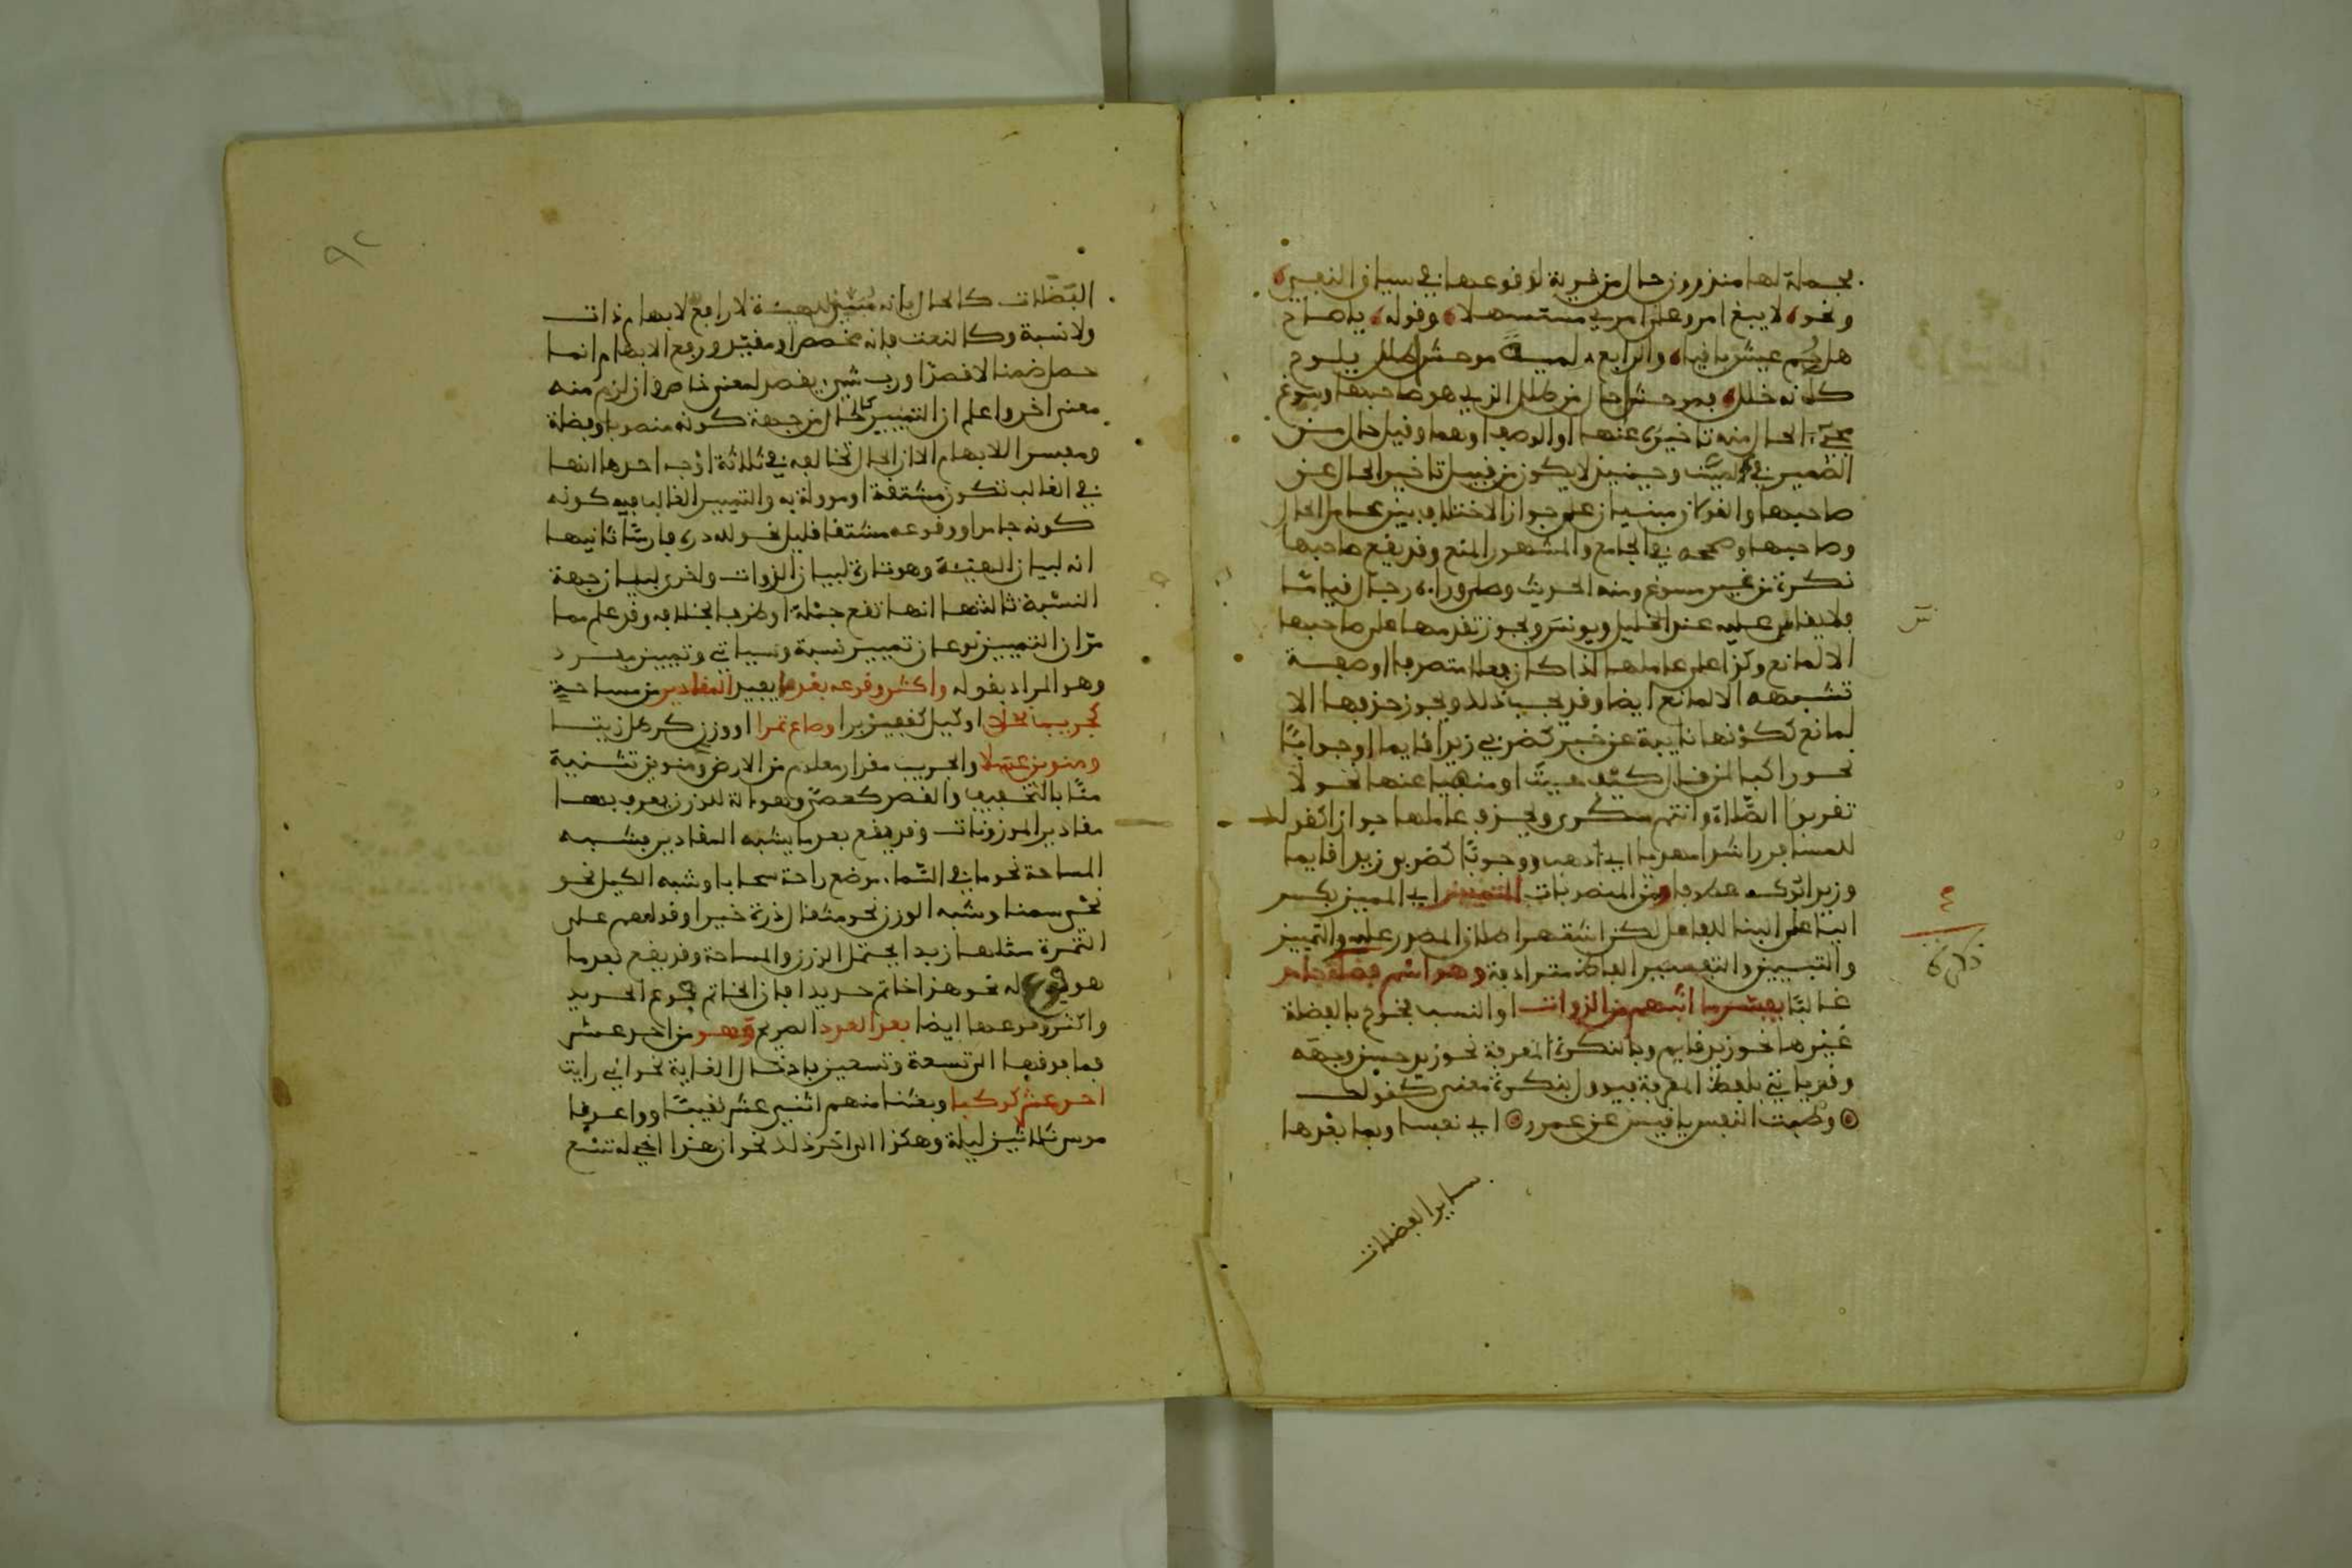 بجملة لها منذرون حال من قرية لوقوعها في سياق النفي
ونحو لا يبغ امرؤ على امرئ مستسهلا وقوله يا صاح
هل حم عيش باقيا والرابع لمية موحشا طلل يلوح
كانه خلل فموحشا حال من طلل الذي هو صاحبها وسوغ
مجيء الحال منه تاخيره عنها او الوصف او هما وقيل حال من
الضمير في لمية وحينئذ لا يكون من قبيل تاخير الحال عن
صاحبها والقولان مبنيان على جواز الاختلاف بين عامل الحال
وصاحبها وصححه في الجامع والمشهور المنع وقد يقع صاحبها
نكرة من غير مسوغ ومنه الحديث وصلى وراءه رجال قياما
ولا يقاس عليه عند الخليل ويونس ويجوز تقدمها على صاحبها
الا لمانع وكذا على عاملها اذا كان فعلا متصرفا او صفة
تشبهه الا لمانع ايضا وقد يجب ذلك ويجوز حذفها الا
لمانع ككونها نايبة عن خبر كضربي زيدا قايما او جوابا
نحو راكبا لمن قال كيف جيت او منهيا عنها نحو لا
تقربوا الصلاة وانتم سكرى ويحذف عاملها جوازا كقولك
للمسافر راشدا مهديا اي اذهب ووجوبا كضربي زيدا قايما
وزيد ابوك عطوفا ومن المنصوبات التمييز اي المميز بكسر
اليا على البنا للفاعل لكن اشتهر اطلاق المصدر عليه والتمييز
والتبيين والتفسير الفاظ مترادفة وهو اسم فضلة جامد
غالبا يفسر ما انبهم من الذوات او النسب فخرج بالفضلة
غيرها نحو زيد قايم وبالنكرة المعرفة نحو زيد حسن وجهه
وقد ياتي بلفظ المعرفة فيؤول بنكرة معنى كقوله
وطبت النفس يا قيس عن عمرو اي نفسا وبما بعدها
ساير الفضلات
٩٢
الفضلات كالحال فانه مبين لهيئة لا رافع لابهام ذات
ولا نسبة وكالنعت فانه مخصص او مقيد ورفع الابهام انما
حصل ضمنا لا قصدا ورب شيء يقصد لمعنى خاص وان لزم منه
معنى اخر واعلم ان التمييز كالحال من جهة كونه منصوبا وفضلة
ومفسرا للابهام الا ان الحال تخالفه في ثلاثة اوجه احدها انها
في الغالب تكون مشتقة او مؤولة به والتمييز الغالب فيه كونه
كونه جامدا ووقوعه مشتقا قليل نحو لله دره فارسا ثانيها
انه لبيان الهيئة وهو تارة لبيان الذوات واخرى لبيان جهة
النسبة ثالثها انها تقع جملة او ظرفا بخلافه وقد علم مما
مر ان التمييز نوعان تمييز نسبة وسياتي وتمييز مفرد
وهو المراد بقوله واكثر وقوعه بعد ما يفيد المقادير من مساحة
كجريب نخلا او كيل كقفيز برا وصاع تمرا او وزن كرطل زيتا
ومنوين عسلا والجريب مقدار معلوم من الارض ومنوين تثنية
منا بالتخفيف والقصر كعصى وهو الة للوزن يعرف بها
مقادير الموزونات وقد يقع بعد ما يشبه المقادير فشبه
المساحة نحو ما في السماء موضع راحة سحابا وشبه الكيل نحو
نحي سمنا وشبه الوزن نحو مثقال ذرة خيرا وقولهم على
التمرة مثلها زبدا يحتمل الوزن والمساحة وقد يقع بعد ما
هو فرع له نحو هذا خاتم حديدا فان الخاتم فرع الحديد
واكثر وقوعها ايضا بعد العدد الصريح وهو من احد عشر
فما فوقها الى تسعة وتسعين بادخال الغاية نحو اني رايت
احد عشر كوكبا وبعثنا منهم اثني عشر نقيبا وواعدنا
موسى ثلاثين ليلة وهكذا الى اخر ذلك نحو ان هذا اخي له تسع